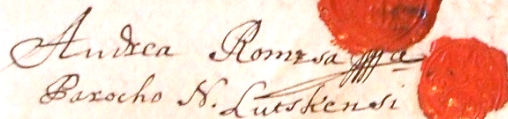 Andrea Romzsa
Parocho N. Lutskensi